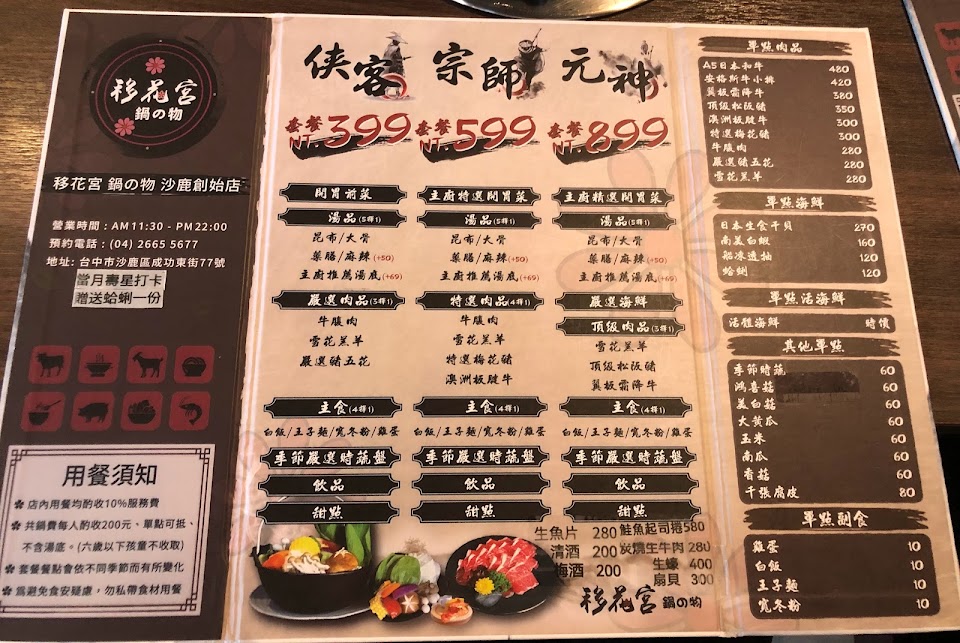 移花宮
鍋の物
移花宮 鍋の物 沙鹿創始店
營業時間：AM11:30 - PM22:00
預約電話：(04) 2665 5677
地址: 台中市沙鹿區成功東街77號
當月壽星打卡
贈送蛤蜊一份
用餐須知
店內用餐均酌收10%服務費
共鍋費每人酌收200元、單點可抵、
不含湯底。(六歲以下孩童不收取)
套餐餐點會依不同季節而有所變化
為避免食安疑慮，勿私帶食材用餐
俠客
套餐 NT.399
開胃前菜
湯品(5擇1)
昆布/大骨
藥膳/麻辣(+50)
主廚推薦湯底(+69)
嚴選肉品(3擇1)
牛腹肉
雪花羔羊
嚴選豬五花
主食(4擇1)
白飯/王子麵/寬冬粉/雞蛋
季節嚴選時蔬盤
飲品
甜點
宗師
套餐 NT.599
主廚特選開胃菜
湯品(5擇1)
昆布/大骨
藥膳/麻辣(+50)
主廚推薦湯底(+69)
特選肉品(4擇1)
牛腹肉
雪花羔羊
特選梅花豬
澳洲板腱牛
主食(4擇1)
白飯/王子麵/寬冬粉/雞蛋
季節嚴選時蔬盤
飲品
甜點
元神
套餐 NT.899
主廚精選開胃菜
湯品(5擇1)
昆布/大骨
藥膳/麻辣(+50)
主廚推薦湯底(+69)
嚴選海鮮
頂級肉品(3擇1)
雪花羔羊
頂級松阪豬
翼板霜降牛
主食(4擇1)
白飯/王子麵/寬冬粉/雞蛋
季節嚴選時蔬盤
飲品
甜點
生魚片 280 鮭魚起司捲580
清酒 200 炭燒生牛肉 280
梅酒 200 生蠔 400
扇貝 300
移花宮 鍋の物
單點肉品
A5日本和牛 480
安格斯牛小排 420
翼板霜降牛 380
頂級松阪豬 350
澳洲板腱牛 300
特選梅花豬 300
牛腹肉 280
嚴選豬五花 280
雪花羔羊 280
單點海鮮
日本生食干貝 270
南美白蝦 160
船凍透抽 120
蛤蜊 120
單點活海鮮
活體海鮮 時價
其他單點
季節時蔬 60
鴻喜菇 60
美白菇 60
大黃瓜 60
玉米 60
南瓜 60
香菇 60
千張腐皮 80
單點副食
雞蛋 10
白飯 10
王子麵 10
寬冬粉 10